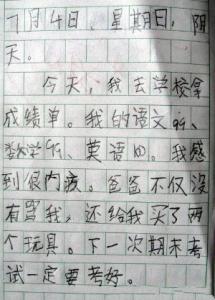 7月4日，星期日，阴
天。
今天，我去学校拿
成绩单。我的语文99、
数学99、英语100。我感
到很内疚。爸爸不仅没
有骂我，还给我买了两
个玩具。下一次期末考
试一定要考好。